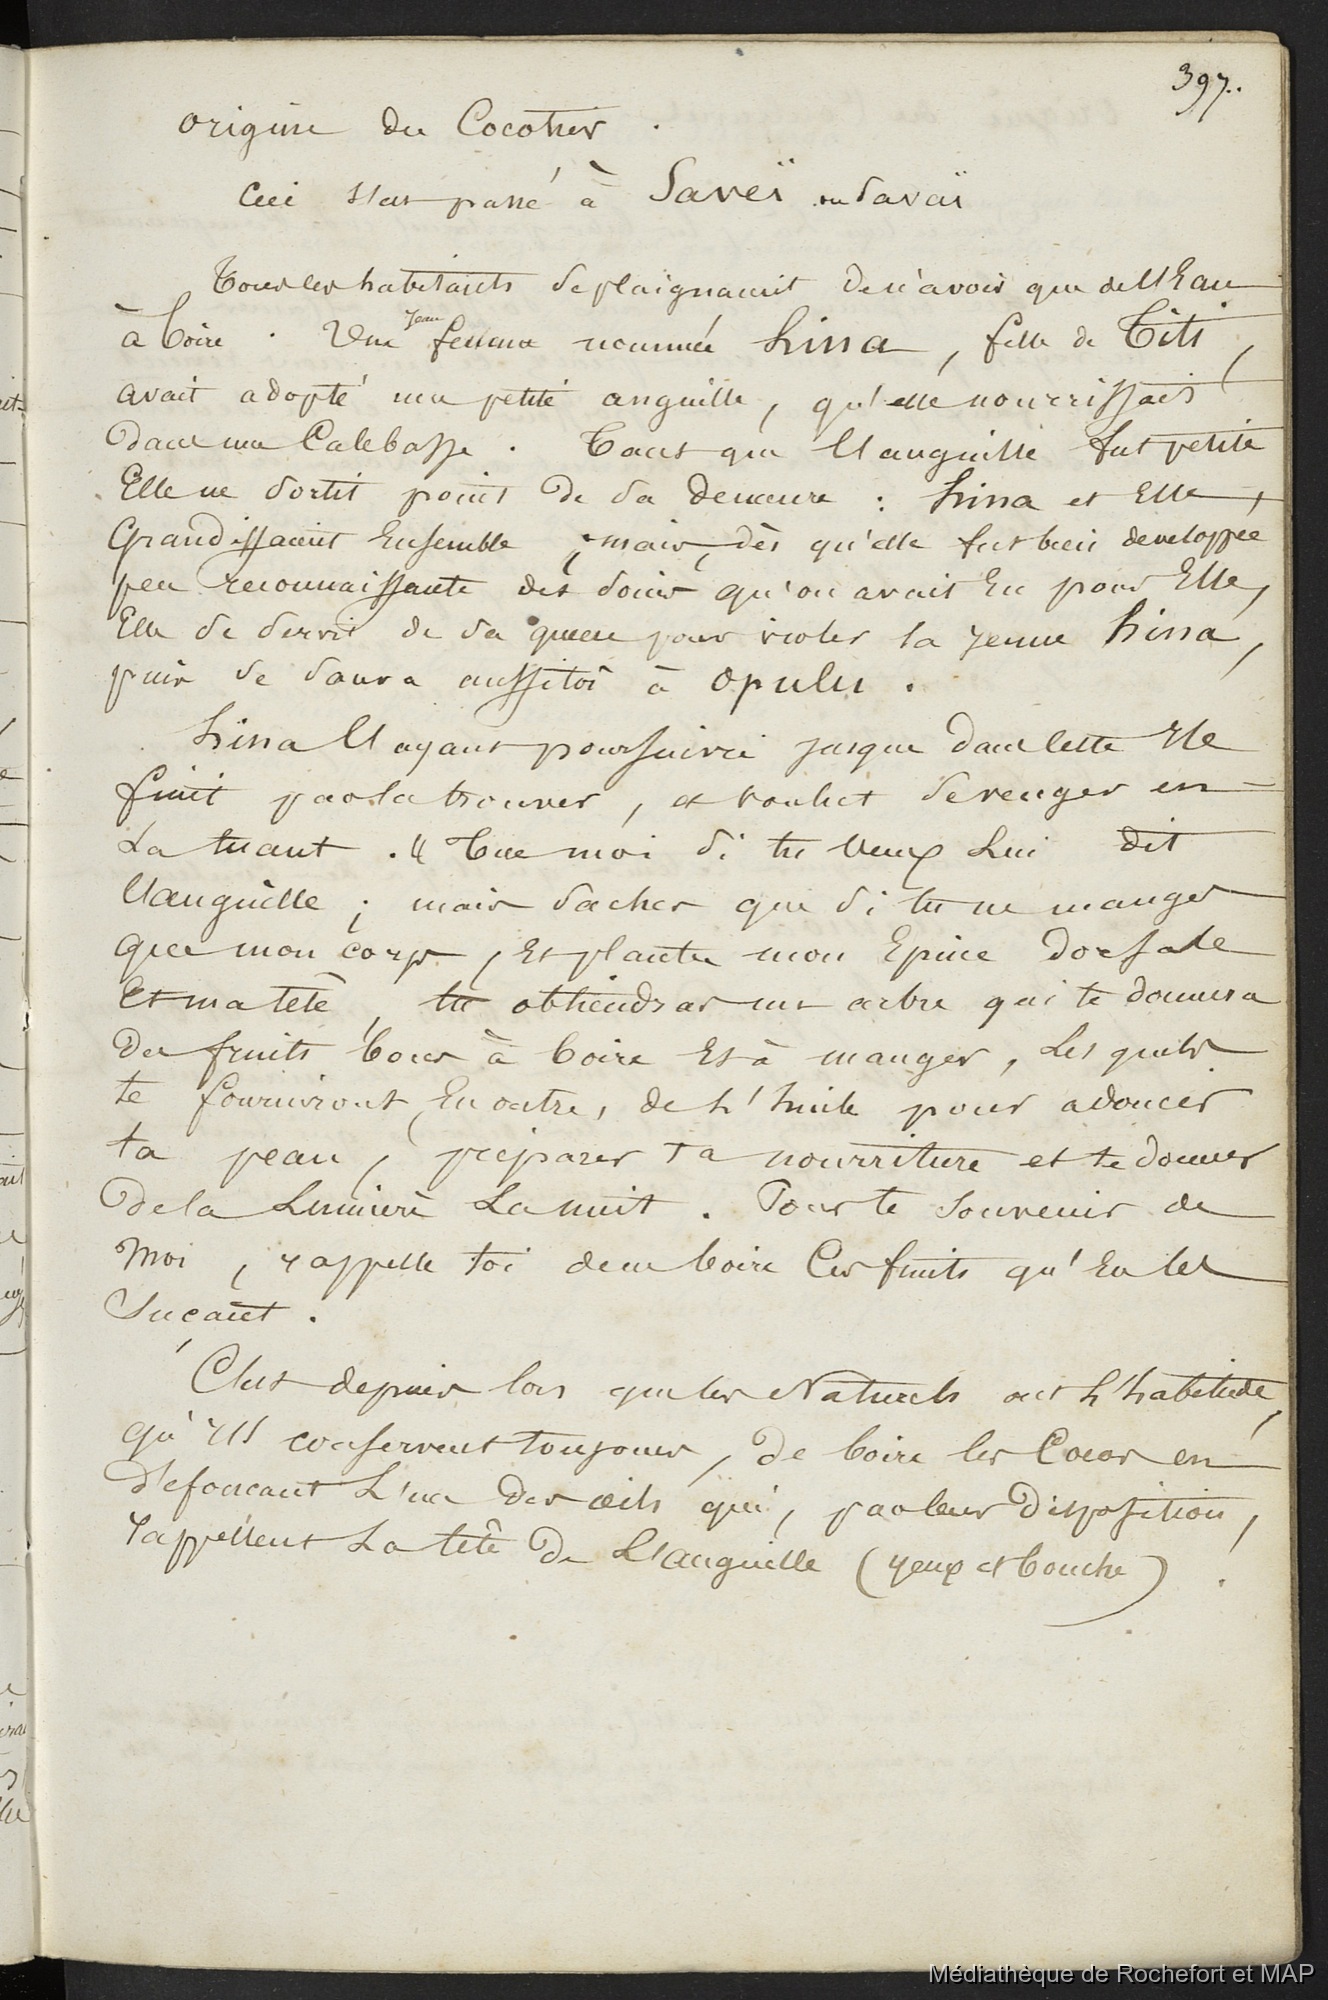 397..
origine du Cocotier .
Ceci s'est passé à Saveï ou Savaï
Tous les habitants se plaignaient de n'avoir que de l'Eau
à boire . Une jeune femme nommée hina, fille de Titi,
avait adopté une petite anguille, qu'elle nourrissait
dans une Calebasse . Tant que l'anguille fut petite
Elle ne sortit point de sa demeure : hina et Elle,
Grandissaient Ensemble ; mais, dès qu'elle fut bien developpée
peu reconnaissante des soins qu'on avait Eu pour Elle,
Elle se servit de sa queue pour violer la jeune hina,
puis se sauva aussitôt à Opulu .
hina l'ayant poursuivie jusque dans cette Ile
finit par la trouver, et voulut se venger en
La tuant . " Tue moi si tu veux Lui dit
l'anguille ; mais saches que si tu ne manges
que mon corps, Et plantes mon Epine dorsale
Et ma tête, tu obtiendras un arbre qui te donnera
des fruits bons à boire Et à manger, Lesquels
te fourniront, En outre, de l'huile pour adoucir
ta peau, préparer ta nourriture et te donner
de la Lumière La nuit . Pour te souvenir de
Moi, rappelle toi de ne boire Ces fruits qu'En les
Suçant .
C'est depuis lors que les Naturels ont l'habitude,
qu'ils conservent toujours, de boire les Cocos en
défonçant L'un des œils qui, par leur disposition,
rappellent La tête de L'anguille (yeux et bouche) .
Médiathèque de Rochefort et MAP